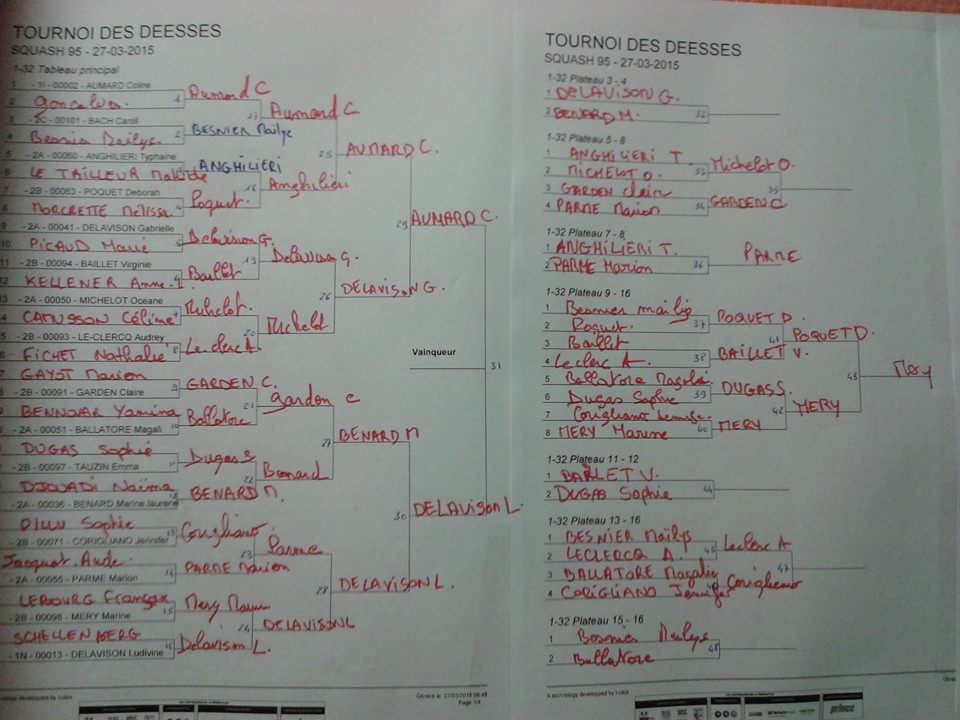 TOURNOI DES DEESSES
SQUASH 95 - 27-03-2015
1-32 Tableau principal
1 - 1I - 00002 - AUMARD Coline
2 Goncalver.
3 - 2C - 00101 - BACH Caroli
4 Besnier Maïlys
5 - 2A - 00060 - ANGHILIERI Typhaine
6 LE TAILLEUR
7 - 2B - 00063 - POQUET Deborah
8 MORCRETTE Melissa
9 - 2A - 00041 - DELAVISON Gabrielle
10 PICAUD Marie
11 - 2B - 00094 - BAILLET Virginie
12 KELLENER Anne-
13 - 2A - 00050 - MICHELOT Oceane
4 CAMUSSON Céline
5 - 2B - 00093 - LE-CLERCQ Audrey
6 - FICHET Nathalie
7 GAYOT Marion
- 2B - 00091 - GARDEN Claire
9 BENNOUAR Yamina
- 2A - 00051 - BALLATORE Magali
DUGAS Sophie
- 2B - 00097 - TAUZIN Emma
DJOUADI Naïma
- 2A - 00036 - BENARD Marine laurene
DILLU Sophie
- 2B - 00071 - CORIGLIANO Jennifer
Jacquot Aude.
- 2A - 00055 - PARME Marion
LEBOURG Françoise
- 2B - 00098 - MERY Marine
SCHELLENBERG
- 1N - 00013 - DELAVISON Ludivine
Aumard C
2 BESNIER Maïlys
ANGHILIERI
Poquet.
Delavison G.
Baillet
Michelot.
8 Leclerc A.
9 GARDEN C.
10 Ballatore
11 Dugas S
12 BENARD M.
13 Corigliano
14 PARME Marion
15 Mery
16 Delavison L.
17 Aumard C
18 Anghilieri
19 Delavison G.
20 Michelot
21 Garden C
22 Benard
23 Parme
24 DELAVISON L
25 AUMARD C.
26 DELAVISON G.
27 BENARD M
28 DELAVISON L.
29 AUMARD C.
30 DELAVISON L.
Vainqueur
31
technology developped by I-click
Généré le: 27/03/2015
Page 1/4
TOURNOI DES DEESSES
SQUASH 95 - 27-03-2015
1-32 Plateau 3 - 4
1 DELAVISON G.
2 BENARD M. 32
1-32 Plateau 5 - 8
1 ANGHILIERI T. Michelot O.
2 MICHELOT O. 33
3 GARDEN Clair GARDEN C
4 PARME Marion 34
35
1-32 Plateau 7 - 8
1 ANGHILIERI T. PARME
2 PARME Marion 36
1-32 Plateau 9 - 16
1 Besnier maïlys POQUET D.
2 Poquet. 37
3 Baillet BAILLET V.
4 Leclerc A. 38
5 Ballatore Magali. DUGAS S.
6 Dugas Sophie 39
7 Corigliano
8 MERY Marine 40 MERY
41 POQUET D.
42 MERY
43 Mery
1-32 Plateau 11 - 12
1 BAILLET V.
2 DUGAS Sophie 44
1-32 Plateau 13 - 16
1 BESNIER Maïlys Leclerc A
2 LECLERCQ A. 45
3 BALLATORE Magalie Corigliano
4 CORIGLIANO Jennifer 46
47
1-32 Plateau 15 - 16
1 Besnier Maïlys
2 Ballatore 48
A technology developped by I-click
prince